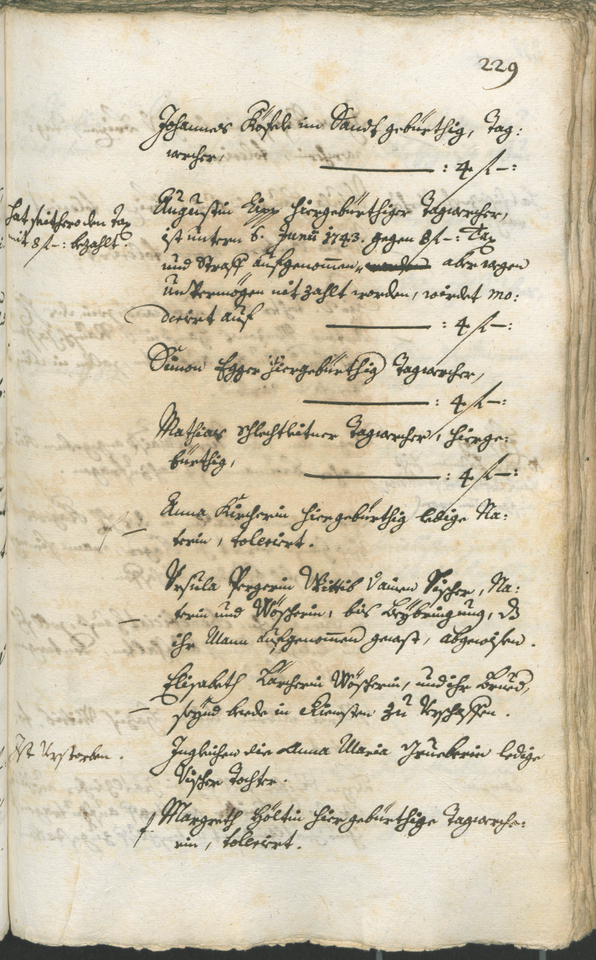 229
Johannes Köfele im Sands gebürthig, Tag:
wercher, : 4 f —:
hat seithero den Tax
mit 8 f —: bezahlt.
Augustin Lipp hiergebürthiger Tagwercher,
ist untern 6. Junii 1743. gegen 8 f —: Tax
und Straff aufgenommen, aber wegen
Unvermögen nit zahlt worden, würdet mo:
derirt auf : 4 f —:
Simon Egger hiergebürthig Tagwercher,
: 4 f —:
Mathias Schlechtleitner Tagwercher, hierge:
bürthig, : 4 f —:
Anna Kircherin hiergebürthig ledige Na:
terin, tollerirt.
Ursula Pergerin Wittib Vischer, Na:
terin und Wöscherin, bis Beybringung, dz
ihr Mann aufgenommen gewest, abgewisen.
Elisabeth Larcherin Wöscherin, und ihr
seynd beede in Diensten zu verschaffen.
Ist verstorben.
Ingleichen die Anna Maria Grueberin ledige
Vischer Tochter.
Margreth Höltin hiergebürthige Tagwerche:
rin, tollerirt.